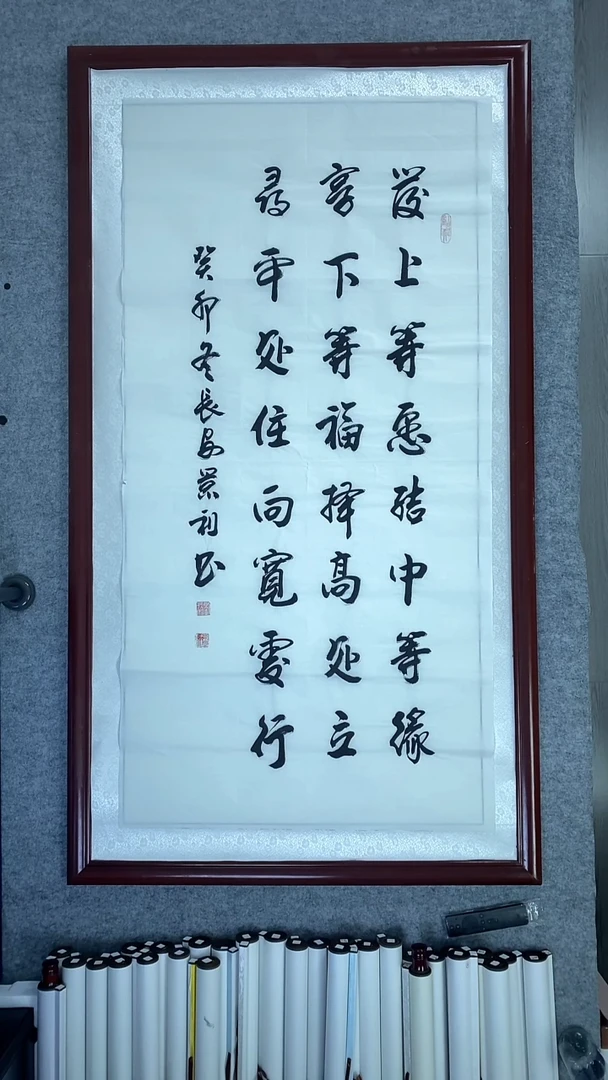 发上等愿结中等缘
享下等福择高处立
寻平处住向宽处行
癸卯冬长安景利书